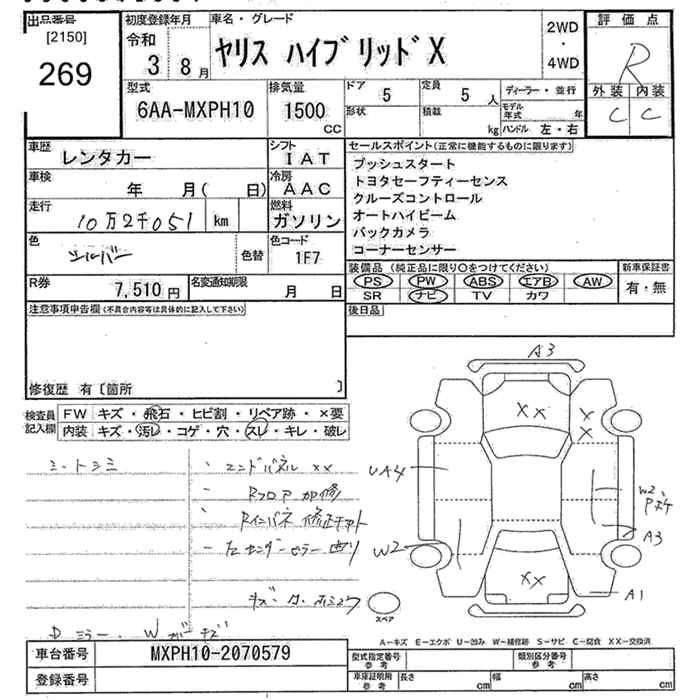 出品番号
[2150]
269
初度登録年月
令和
3 8月
車名・グレード
ヤリス ハイブリッドX
2WD
・
4WD
評価点
R
外装 内装
C C
型式
6AA-MXPH10
排気量
1500
CC
ドア
5
定員
5 人
形状
積載
kg
ディーラー・並行
モデル年式 年
ハンドル 左・右
車歴
レンタカー
シフト
IAT
車検
年 月( 日)
冷房
AAC
走行
10万2千051 km
燃料
ガソリン
色
シルバー
色替
色コード
1F7
R券
7,510円
名変通知期限
月 日
セールスポイント(正常に機能するものに限ります)
プッシュスタート
トヨタセーフティーセンス
クルーズコントロール
オートハイビーム
バックカメラ
コーナーセンサー
装備品(純正品に限り○をつけてください)
PS PW ABS エアB AW
SR ナビ TV カワ
新車保証書
有・無
後日品
注意事項申告欄(不具合内容等は具体的に記入して下さい)
修復歴 有〔箇所 〕
検査員記入欄
FW キズ・飛石・ヒビ割・リペア跡・×要
内装 キズ・汚レ・コゲ・穴・スレ・キレ・破レ
シートシミ
・エンドパネル xx
Rフロア 加修
Rインパネ 修正
Dミラー・Wガキズ
A3
XX
XX
UA4
W2
W2
A3
XX
A1
スペア
A−キズ E−エクボ U−凹み W−補修跡 S−サビ C−腐食 XX−交換済
車台番号
MXPH10-2070579
登録番号
型式指定番号
参考
類別区分番号
参考
車庫証明用
参考
長さ cm
幅 cm
高さ cm